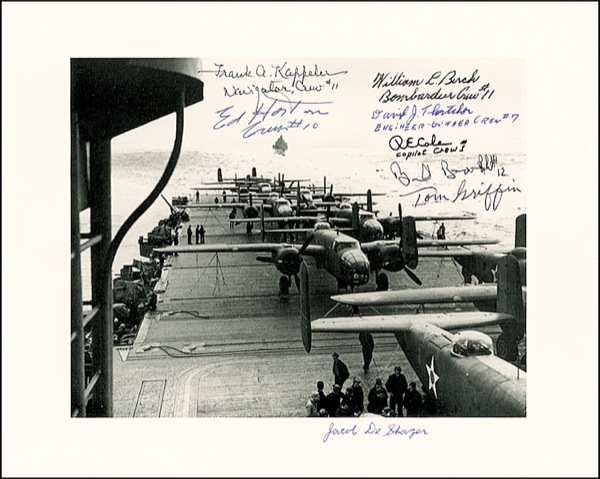 Frank A. Kappeler
Navigator, Crew #11
Ed Horton
Crew #10
William L. Birch
Bombardier Crew #11
David J. Thatcher
ENGINEER-GUNNER CREW #7
R E Cole
copilot CREW 1
#12
Tom Griffin
Jacob De Shazer